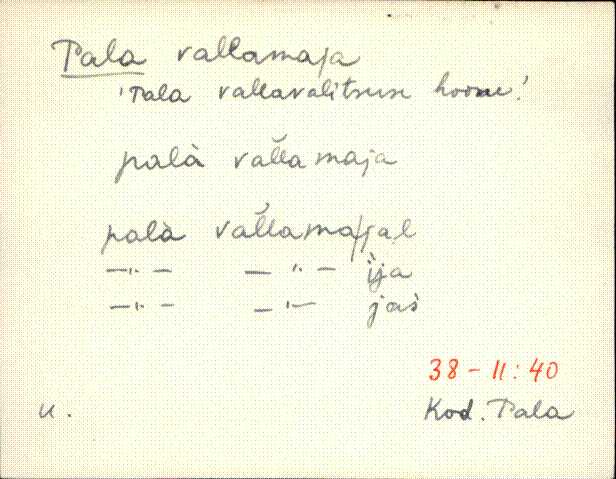 Pala vallamaja
'Pala vallavalitsuse hoone'
palà val̆la maja
palà val̆lamaj/jal
—"— —"— ija
—"— —"— jas
38-11:40
u. Kod. Pala